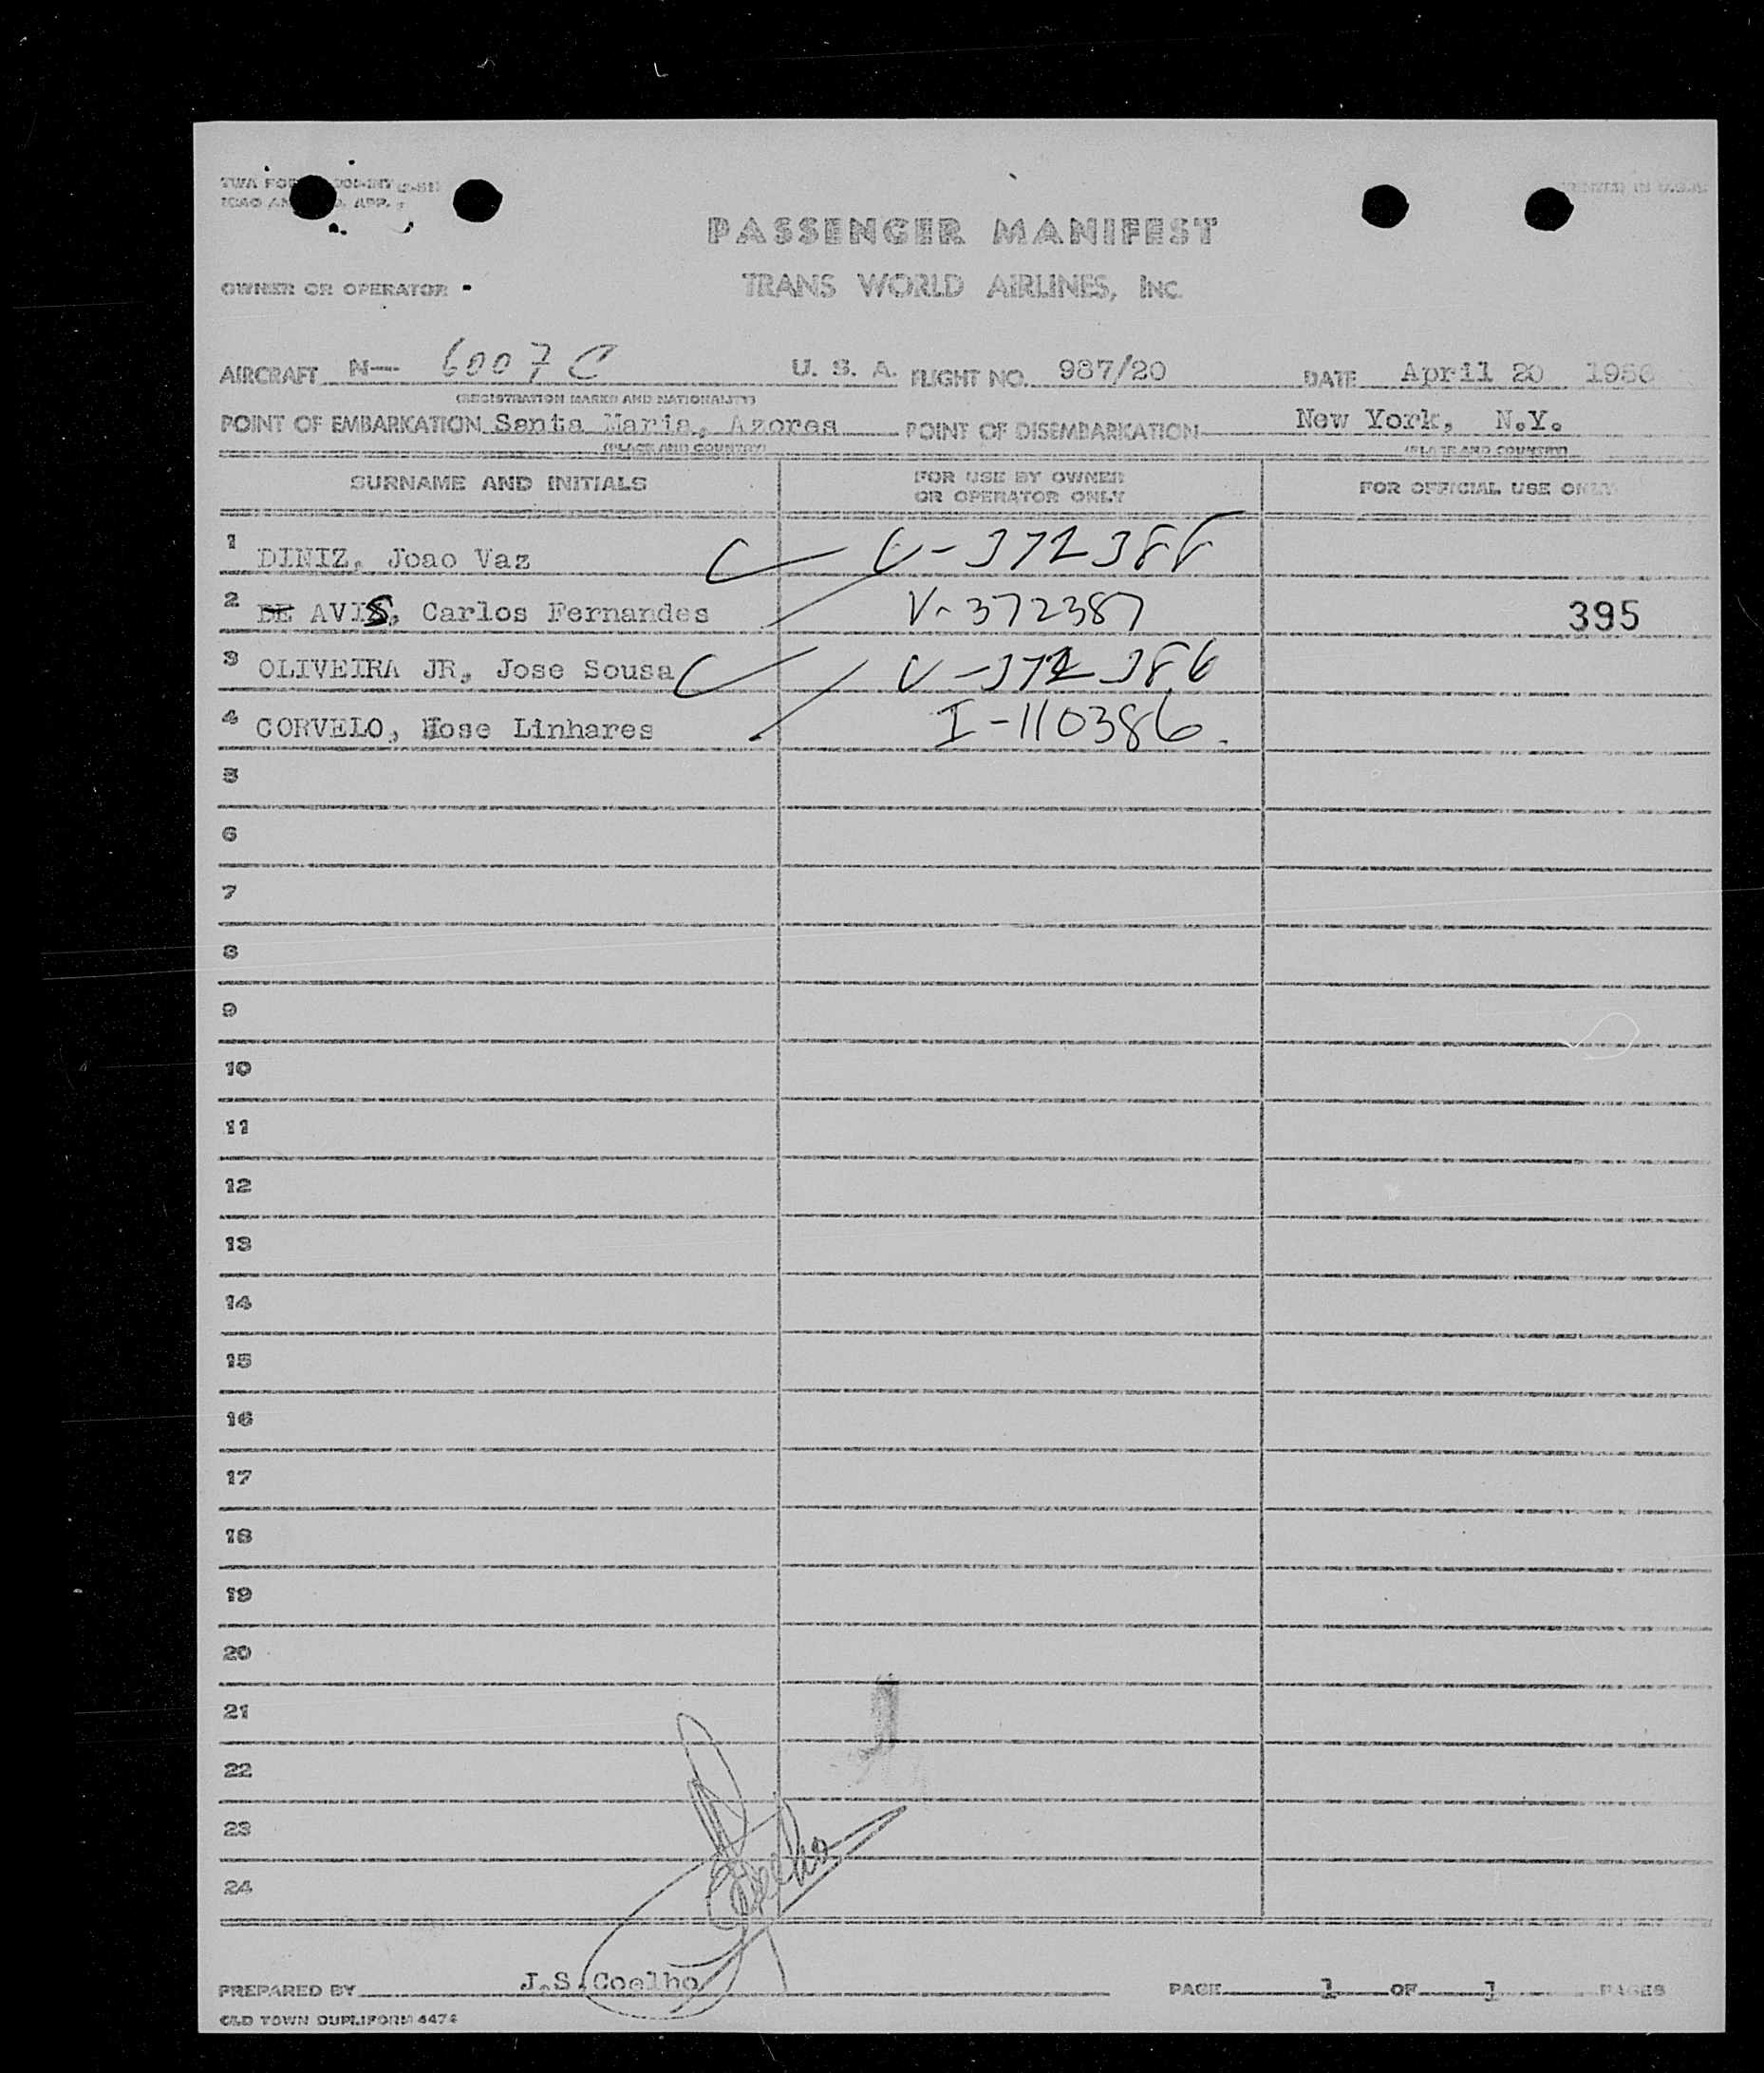 TWA FOR
ICAO AN
PRINTED IN U.S.A.
PASSENGER MANIFEST
OWNER OR OPERATOR
TRANS WORLD AIRLINES, INC.
AIRCRAFT N— 6007 C U. S. A. FLIGHT NO. 987/20 DATE April 20 1956
(REGISTRATION MARKS AND NATIONALITY)
POINT OF EMBARKATION Santa Maria, Azores POINT OF DISEMBARKATION New York, N.Y.
(PLACE AND COUNTRY) (PLACE AND COUNTRY)
SURNAME AND INITIALS FOR USE BY OWNER OR OPERATOR ONLY FOR OFFICIAL USE ONLY
1 DINIZ, Joao Vaz V-372388
2 DE AVIS, Carlos Fernandes V-372387 395
3 OLIVEIRA JR, Jose Sousa V-372386
4 CORVELO, Hose Linhares I-110386.
5
6
7
8
9
10
11
12
13
14
15
16
17
18
19
20
21
22
23
24
PREPARED BY J.S.Coelho PAGE 1 OF 1 PAGES
OLD TOWN DUPLIFORM 4474